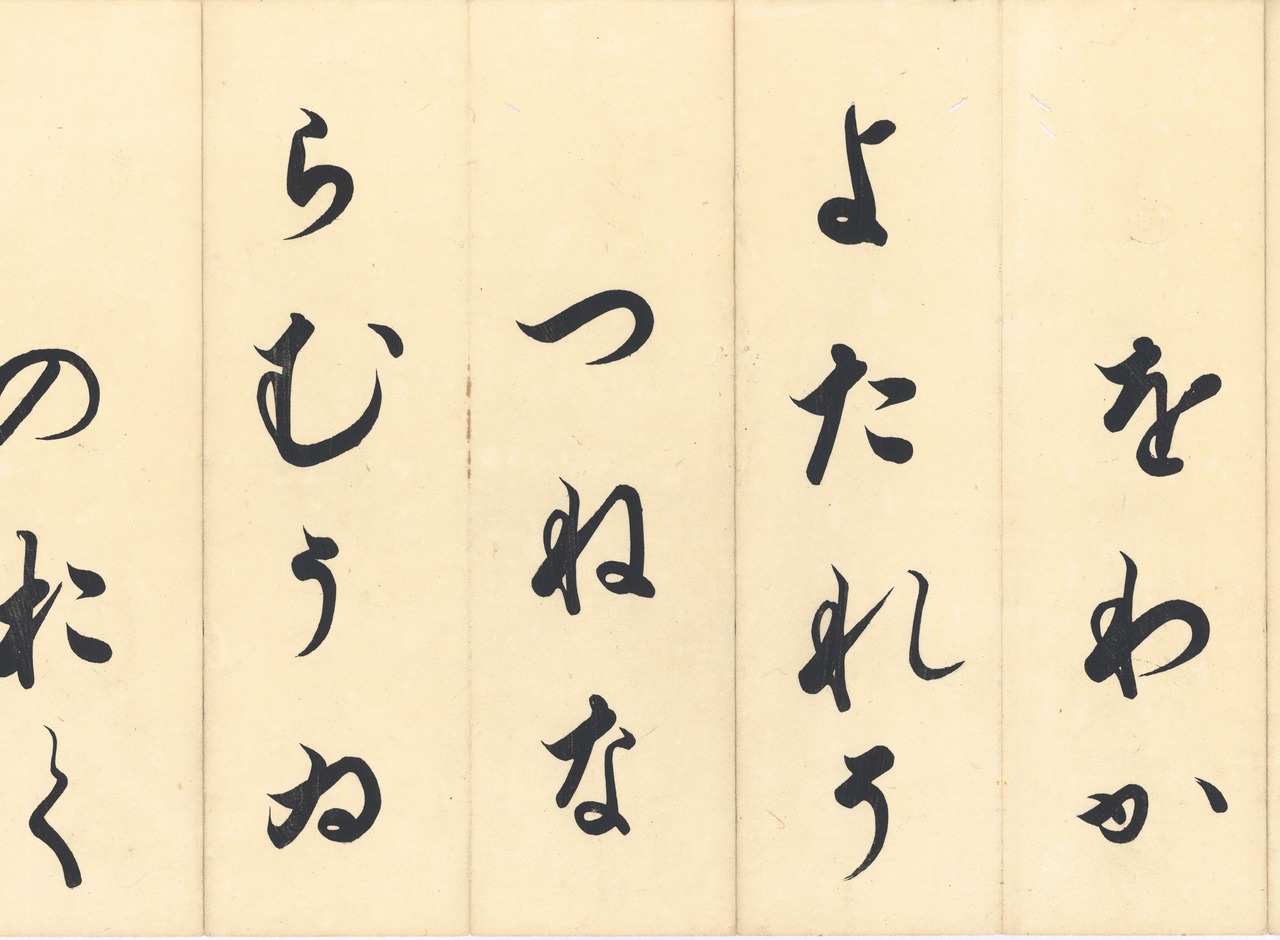 をわか
よたれそ
つねな
らむうゐ
のおく